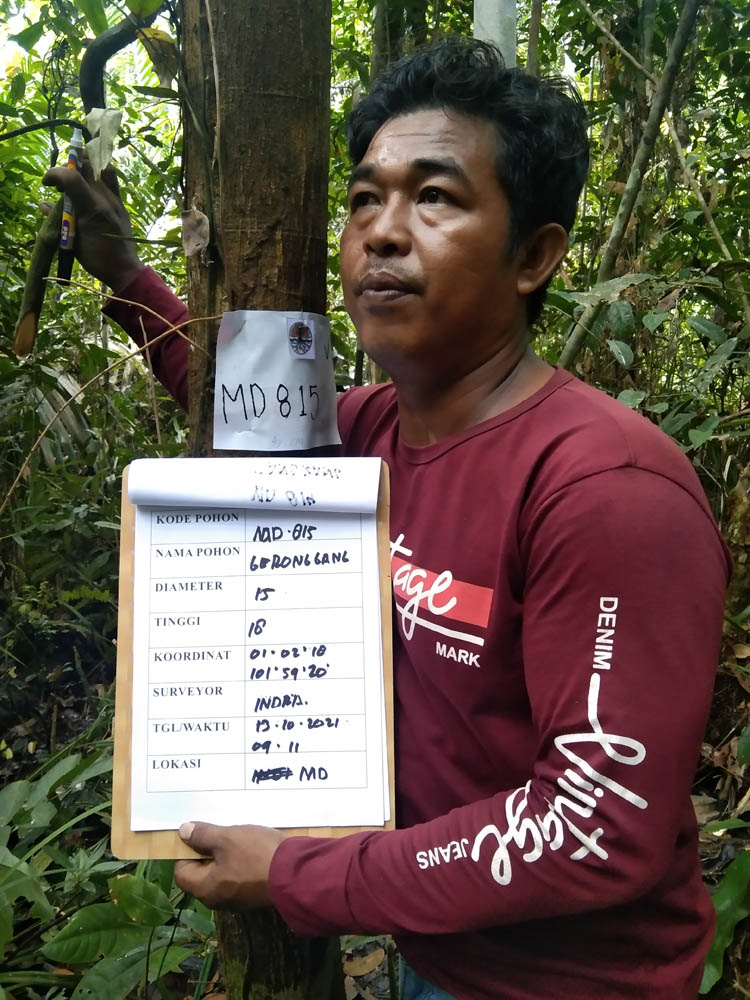 MD 815
KODE POHON MD.815
NAMA POHON GERONGGANG
DIAMETER 15
TINGGI 18
KOORDINAT 01.02'18
101°59'20'
SURVEYOR INDRA.
TGL/WAKTU 13.10.2021.
09.11
LOKASI MD
tage
MARK
DENIM
Vintage
JEANS